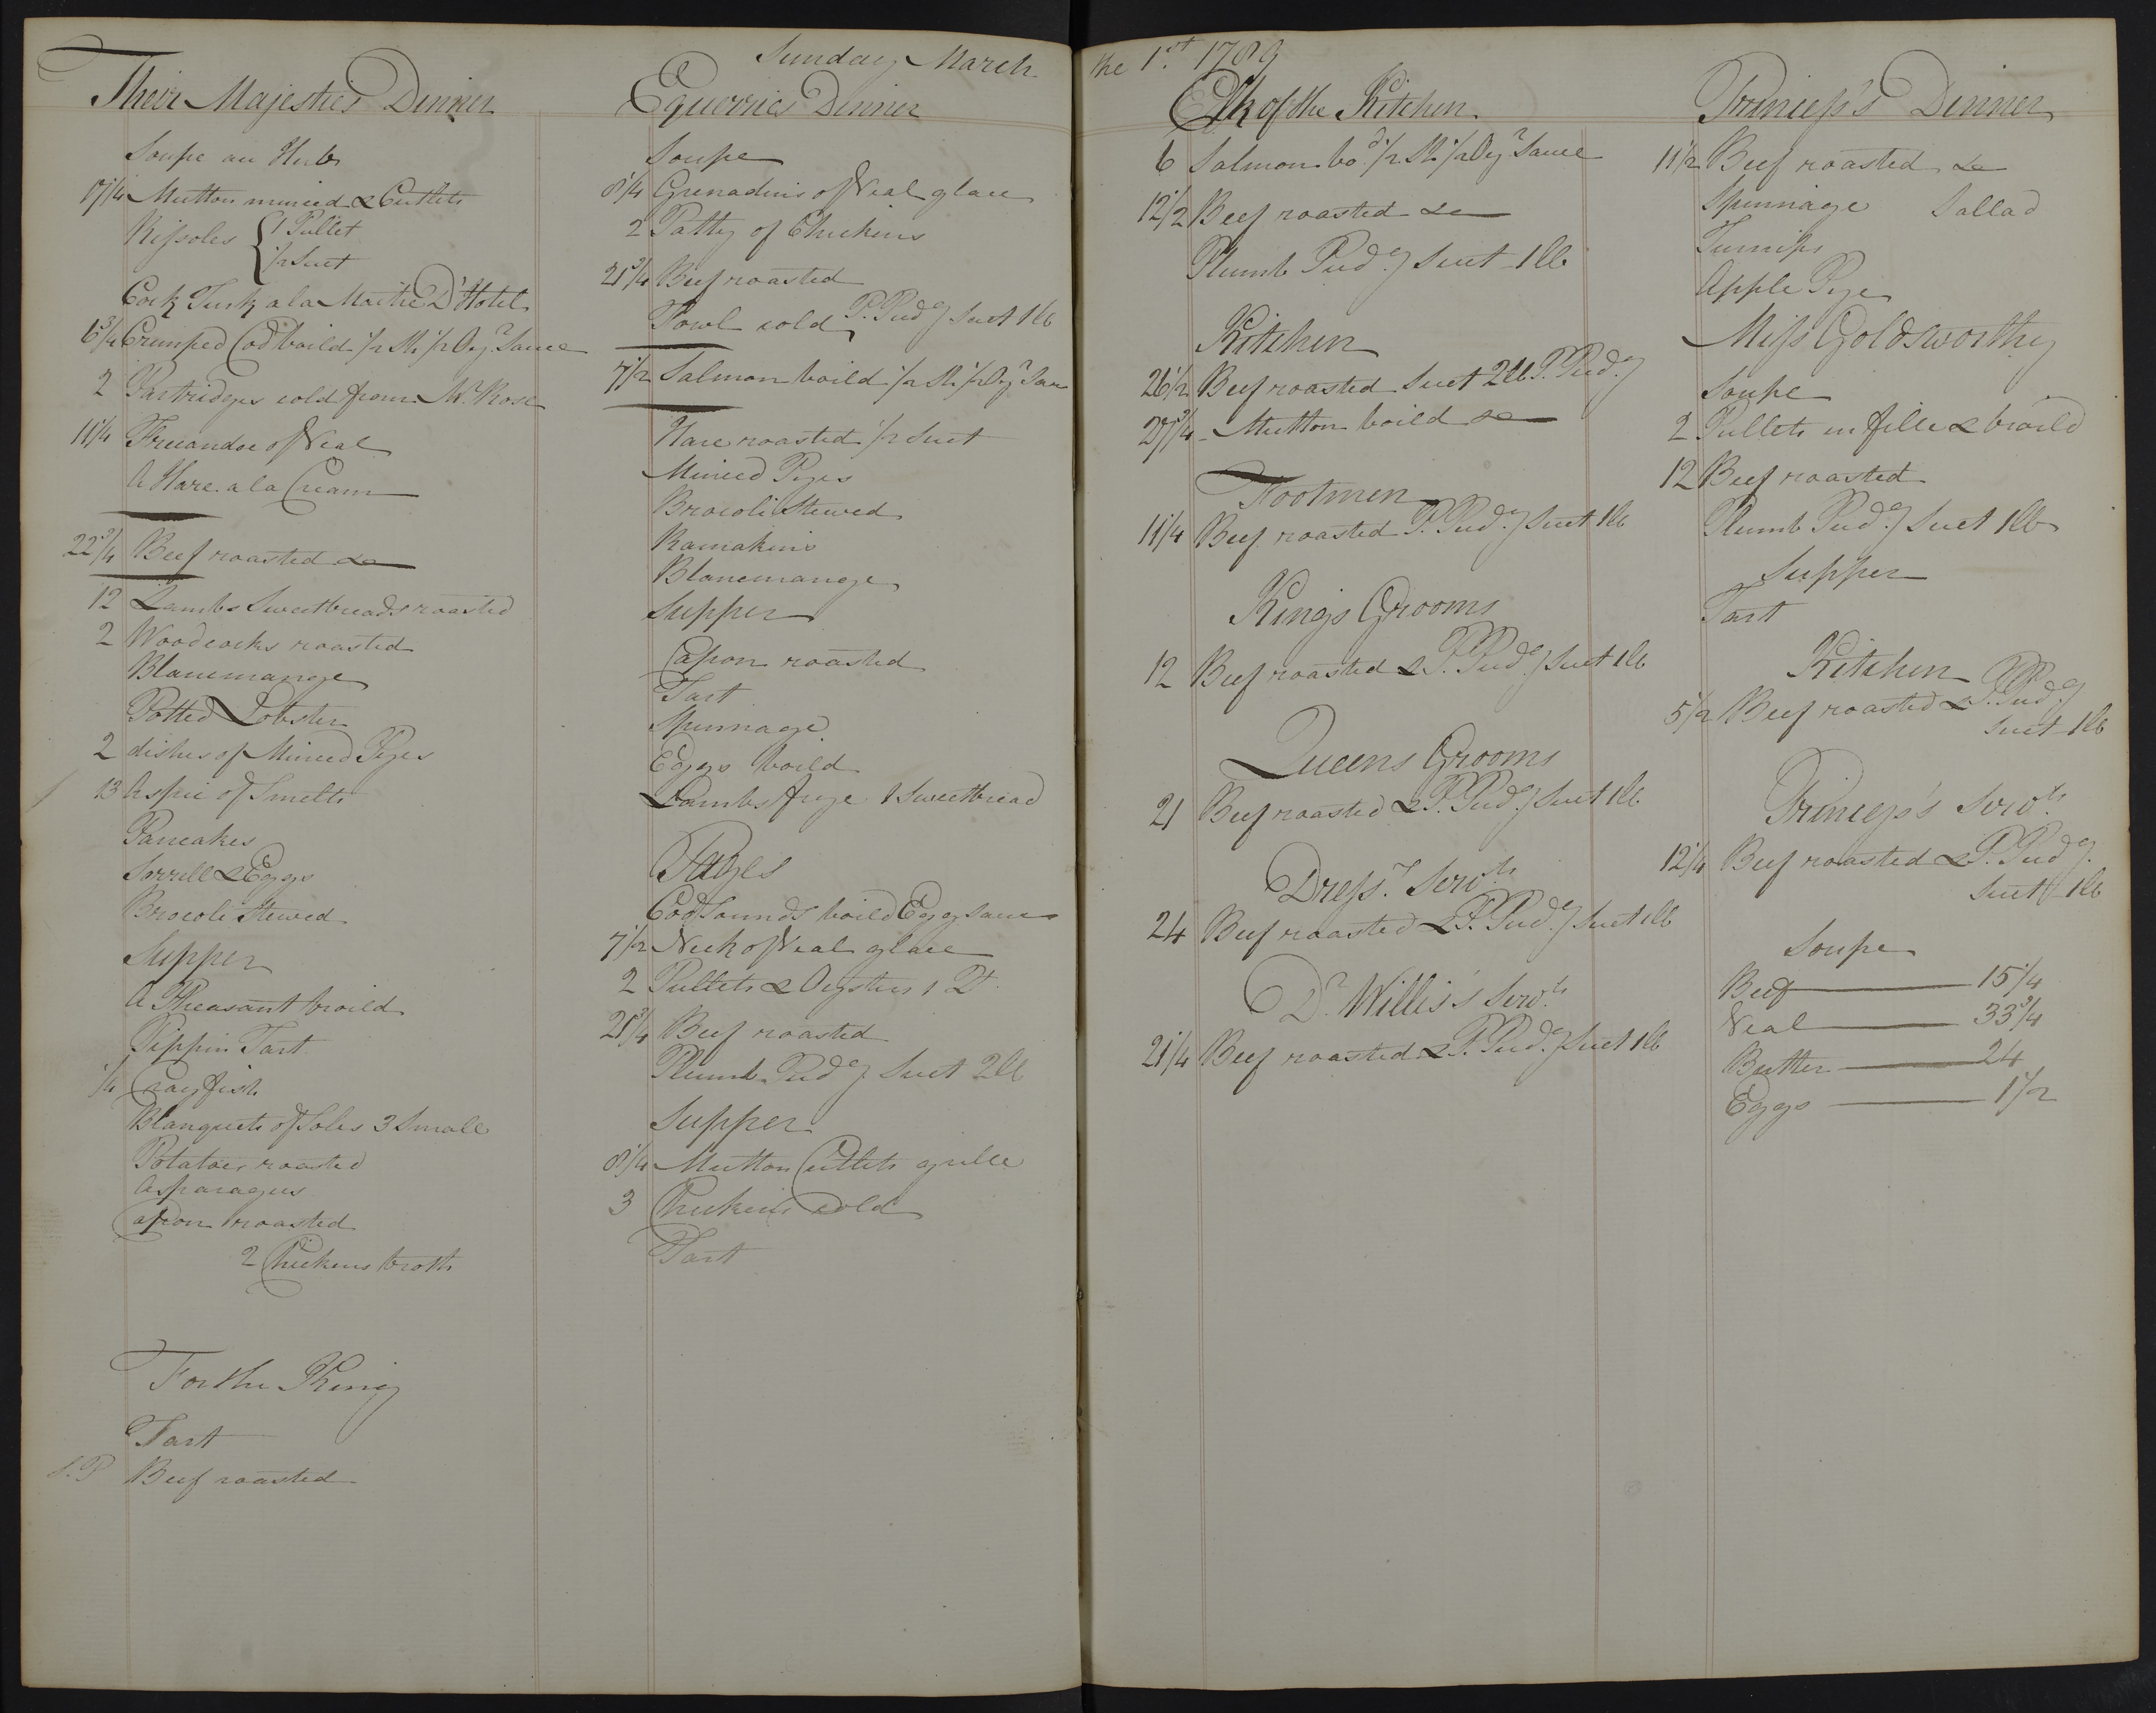 Sunday March the 1st 1789
Their Majesties Dinner
Soupe au Herbs
17 1/4 Mutton minced & Cutlets
Rissoles { 1 Pullet
1/2 Suet
Cock Turk a la Maitre D'Hotel
6 3/4 Crimped Cod boild 1/2 Sh: 1/2 Oyr. Sauce
2 Partridges cold from Mr. Rose
11 1/4 Fricandoe of Veal
A Hare a la Cream
22 3/4 Beef roasted &c
12 Lambs Sweetbreads roasted
2 Woodcocks roasted
Blancmange
Potted Lobster
2 dishes of Minced Pyes
13 Aspic of Smelts
Pancakes
Sorrell & Eggs
Brocoli Stewed
Supper
A Pheasant broild
Pippin Tart
1/4 Crayfish
Blanquets of Soles 3 Small
Potatoes roasted
Asparagus
Capon roasted
2 Chickens broth
For the King
Tart
S.P Beef roasted
Equerries Dinner
Soupe
8 1/4 Grenadins of Veal glace
2 Patty of Chickens
21 3/4 Beef roasted
Fowl cold P. Pudg Suet 1 lb
7 1/2 Salmon boild 1/2 Sh: 1/2 Oyr Sauce
Hare roasted 1/2 Suet
Minced Pyes
Brocoli Stewed
Ramakins
Blancmange
Supper
Capon roasted
Tart
Spinnage
Eggs boild
Lambs frye 1 Sweetbread
Pages
Cod Sounds boild Egg Sauce
7 1/2 Neck of Veal glace
2 Pullets & Oysters 1 Qt.
21 3/4 Beef roasted
Plumb Pudg Suet 2 lb
Supper
8 1/4 Mutton Cutlets grille
3 Chickens cold
Tart
Clk of the Kitchen
6 Salmon bod. 1/2 Sh: 1/2 Oyr Sauce
12 1/2 Beef roasted &c
Plumb Pudg Suet 1 lb
Kitchen
26 1/2 Beef roasted Suet 2 lb P. Pudg
27 3/4 Mutton boild &c
Footmen
11 1/4 Beef roasted P. Pudg Suet 1 lb
Kings Grooms
12 Beef roasted & P. Pudg Suet 1 lb
Queens Grooms
21 Beef roasted & P. Pudg Suet 1 lb
Dressr. Servts.
24 Beef roasted & P. Pudg Suet 1 lb
Dr. Willis's Servts.
21 1/4 Beef roasted & P. Pudg Suet 1 lb
Princess's Dinner
11 1/2 Beef roasted &c
Spinnage Sallad
Turnips
Apple Pye
Miss Goldsworthy
Soupe
2 Pullets in fille & broild
12 Beef roasted
Plumb Pudg Suet 1 lb
Supper
Tart
Kitchen
5 1/2 Beef roasted & P. Pudg
Suet 1 lb
Princess's Servts.
12 1/4 Beef roasted & P. Pudg
Suet 1 lb
Soupe
Beef 15 1/4
Veal 33 3/4
Butter 24
Eggs 1 1/2